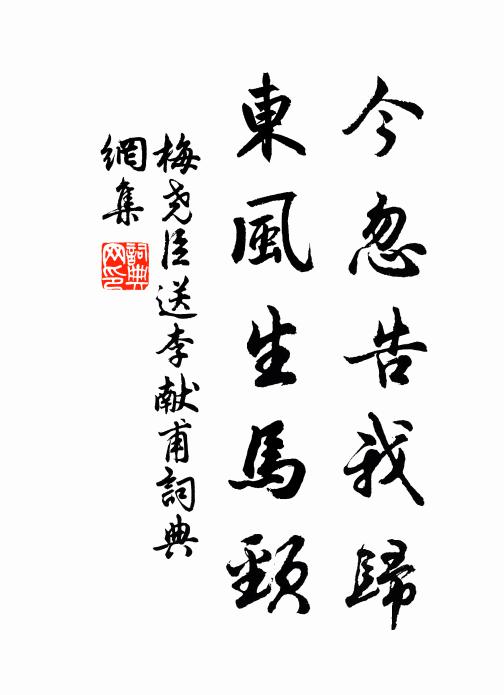 今忽告我歸
東風生馬頸
梅尧臣送李献甫詞典
網集
詞典
网印